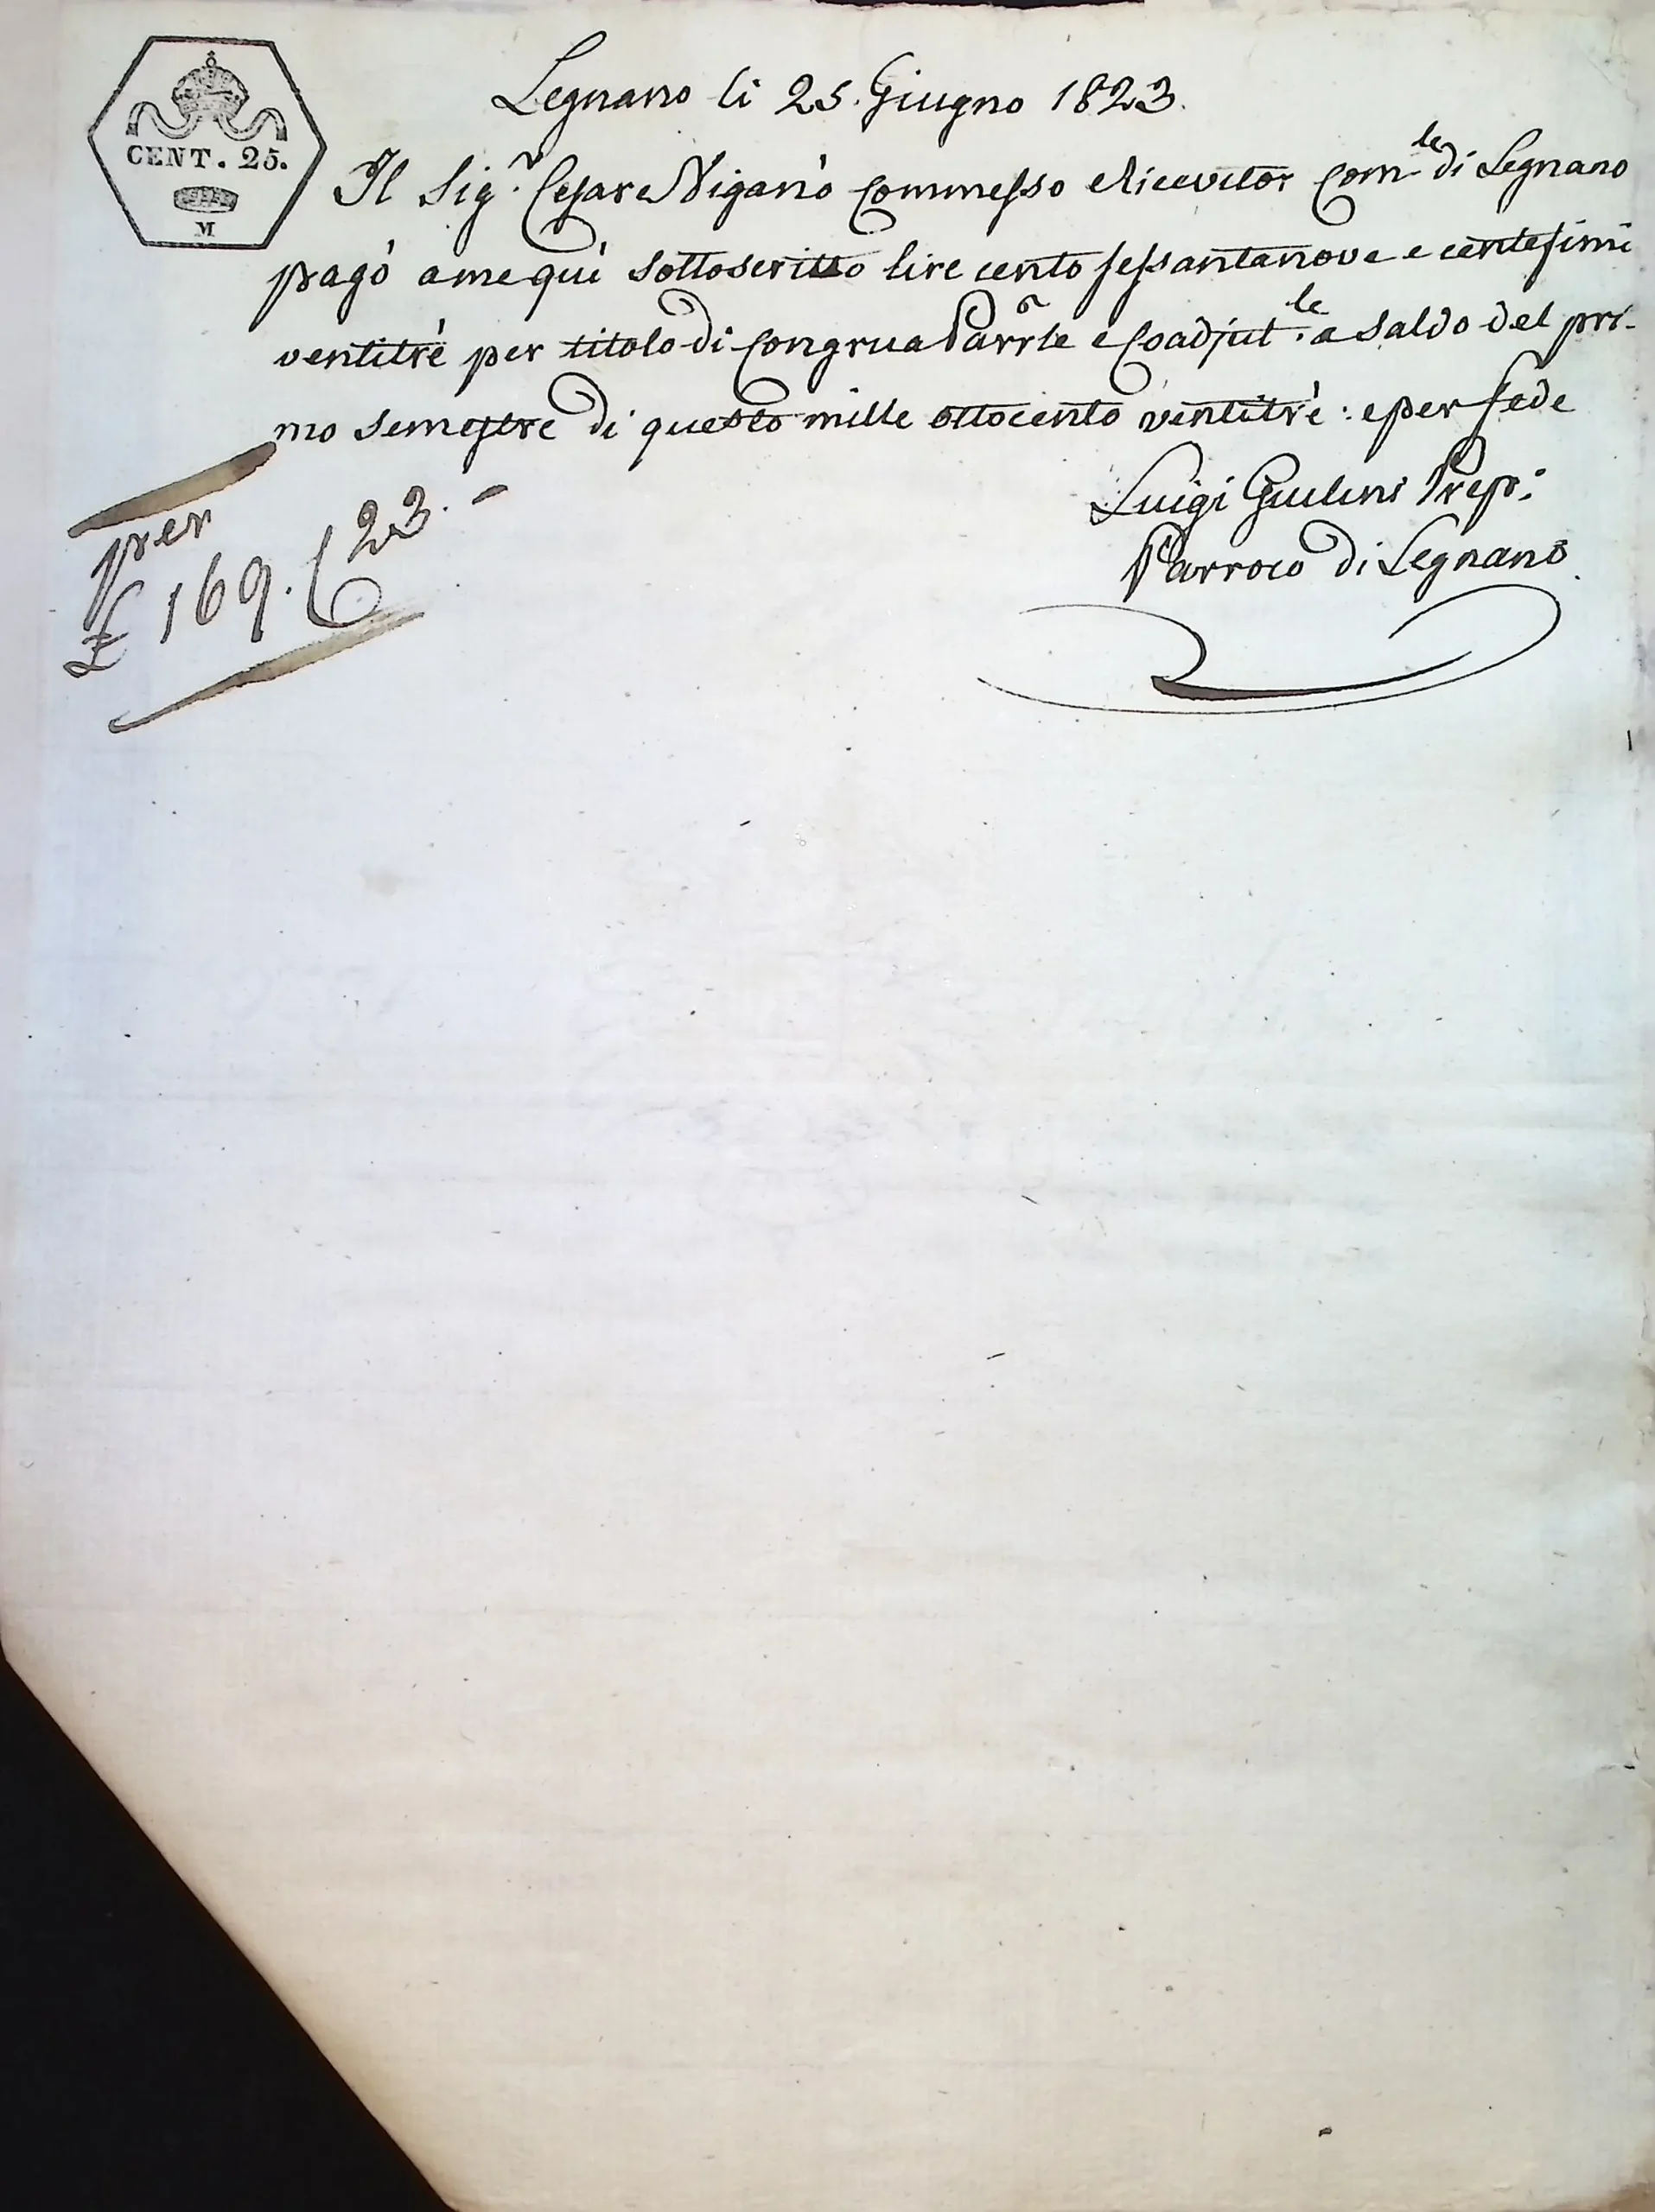 CENT. 25.
M
Legnano li 25. Giugno 1823.
Il Sig.r Cesare Viganò Commesso Ricevitor Com.le di Legnano
pagò a me quì sottoscritto lire cento sessantanove e centesimi
ventitrè per titolo di Congrua Parr.le e Coadjut.le a saldo del pri-
mo semestre di questo mille ottocento ventitrè: e per fede
Luigi Giulini Prep.
Parroco di Legnano
per
£ 169. C 23.-